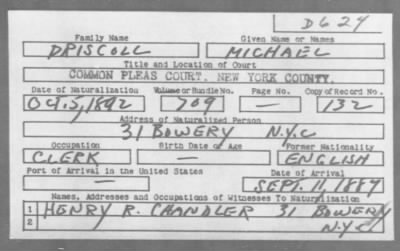 D624
Family Name Given Name or Names
DRISCOLL MICHAEL
Title and Location of Court
COMMON PLEAS COURT, NEW YORK COUNTY.
Date of Naturalization Volume or Bundle No. Page No. Copy of Record No.
OCT.5,1892 709 — 132
Address of Naturalized Person
31 BOWERY N.Y.C
Occupation Birth Date or Age Former Nationality
CLERK — ENGLISH
Port of Arrival in the United States Date of Arrival
— SEPT. 11, 1887
Names, Addresses and Occupations of Witnesses To Naturalization
1 HENRY R. CHANDLER 31 BOWERY
2 N.Y.C